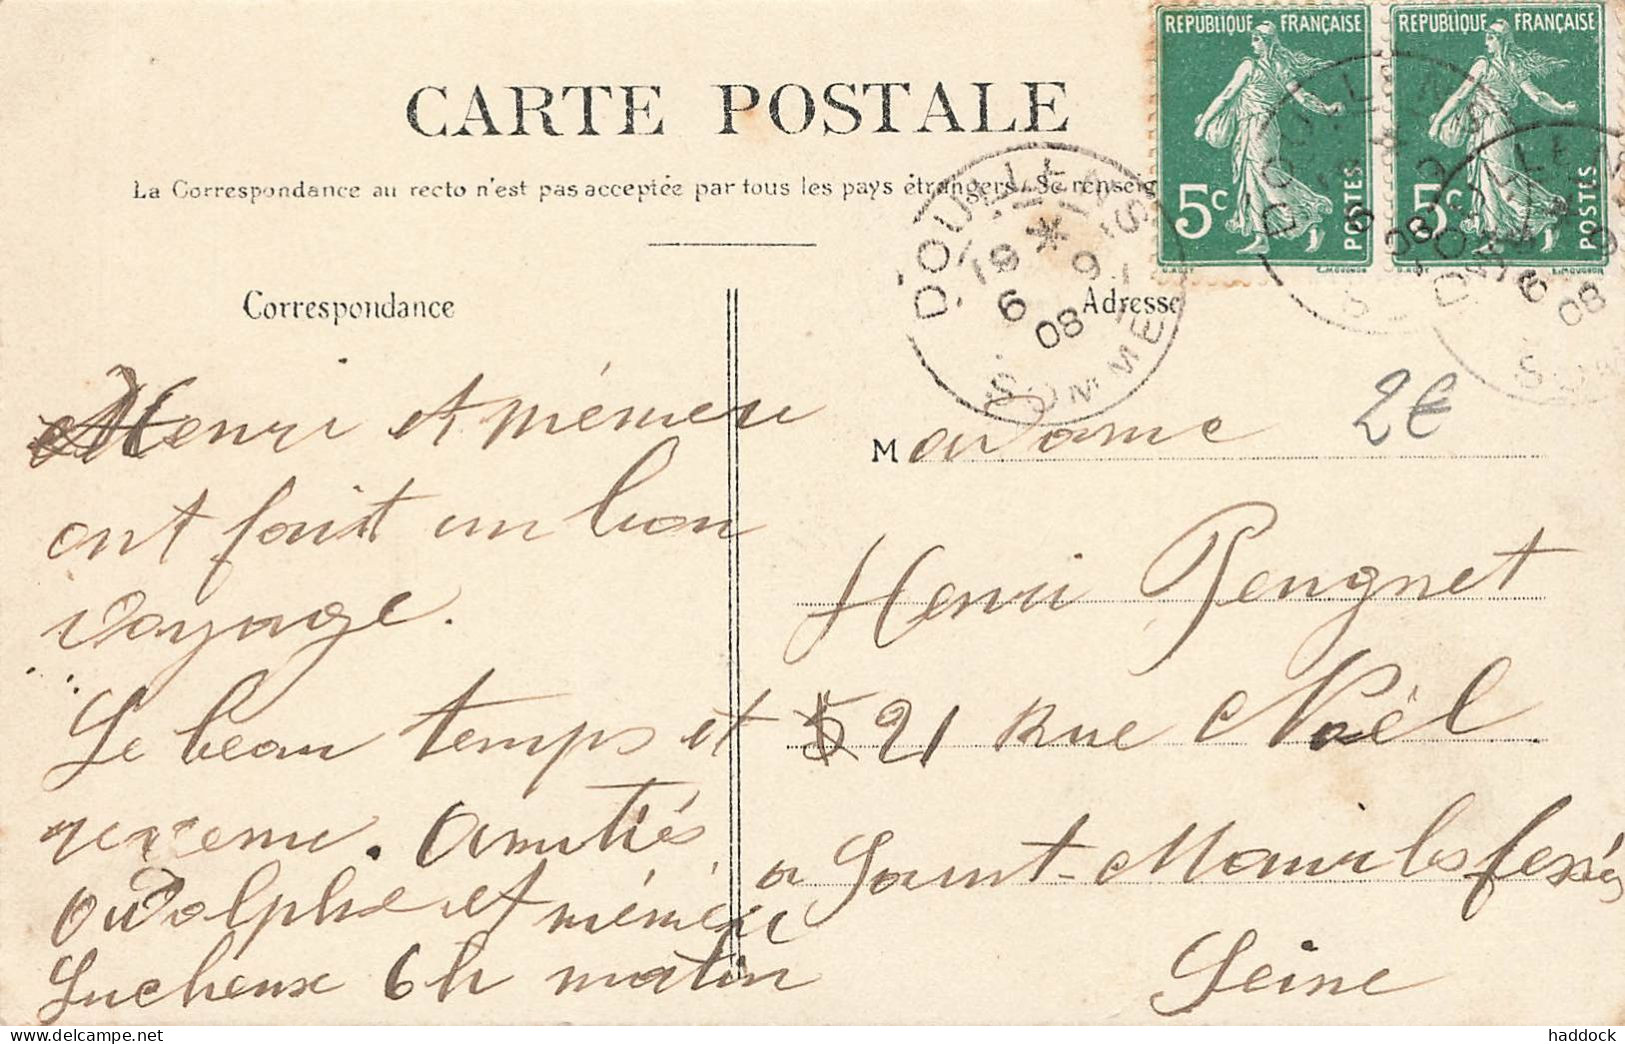 REPUBLIQUE FRANÇAISE
REPUBLIQUE FRANÇAISE
5c POSTES
5c POSTES
CARTE POSTALE
La Correspondance au recto n'est pas acceptée par tous les pays étrangers. Se renseig
DOULLENS
19 * 9
6 08
SOMME
DOULLENS
6 08
S
DOULLEN
6 08
SOM
Correspondance
Henri et mémère
ont fait un bon
voyage.
Le beau temps et
revenu. Amitiés
Odolphe et mémère
Lucheux 6h matin
Adresse
Madame
2€
Henri Pengnet
21 Rue Noël
a Saint-Maur les fessés
Seine
haddock